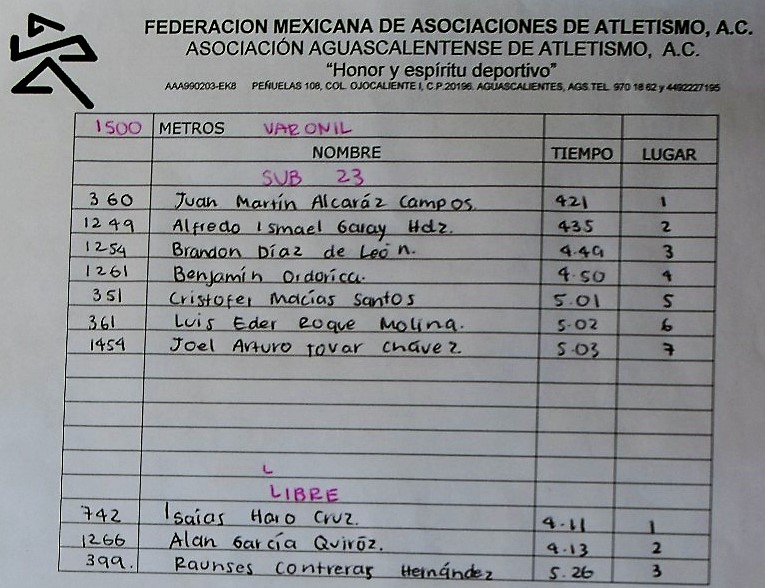 FEDERACION MEXICANA DE ASOCIACIONES DE ATLETISMO, A.C.
ASOCIACIÓN AGUASCALENTENSE DE ATLETISMO, A.C.
“Honor y espíritu deportivo”
AAA990203-EK8 PEÑUELAS 108, COL. OJOCALIENTE I, C.P.20196. AGUASCALIENTES, AGS.TEL. 970 18 62 y 4492227195
1500 METROS VARONIL
NOMBRE TIEMPO LUGAR
SUB 23
360 Juan Martín Alcaráz Campos. 421 1
1249 Alfredo Ismael Garay Hdz. 435 2
1254 Brandon Díaz de León. 4.49 3
1261 Benjamín Ordorica. 4.50 4
351 Cristofer Macías Santos 5.01 5
361 Luis Eder Roque Molina. 5.02 6
1454 Joel Arturo Tovar Chávez 5.03 7
L
LIBRE
742 Isaías Haro Cruz. 4.11 1
1266 Alan García Quiróz. 4.13 2
399. Raunses Contreras Hernández 5.26 3